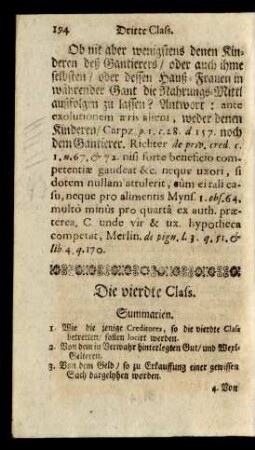 194 Dritte Class.
Ob nit aber wenigstens denen Kin-
deren deß Gantierers / oder auch ihme
selbsten / oder dessen Hauß-Frauen in
währender Gant die Nahrungs-Mittl
außfolgen zu lassen? Antwort: ante
exolutionem æris alieni, weder denen
Kinderen / Carpz. p. 1. c. 28. d 157. noch
dem Gantierer. Richter de priv. cred. c.
1. n. 67. & 72. nisi forte beneficio com-
petentiæ gaudeat &c. neque uxori, si
dotem nullam attulerit, cùm ei tali ca-
su, neque pro alimentis Myns. 1. obs. 64.
multò minùs pro quartâ ex auth. præ-
terea, C. unde vir & ux. hypotheca
competat, Merlin. de pign. l. 3. q. 51. &
lib 4. q. 170.
Die vierdte Class.
Summarien.
1. Wie die jenige Creditores, so die vierdte Class
betretten / sollen locirt werden.
2. Von dem in Verwahr hinterlegten Gut / und Weyl-
Gelteren.
3. Von dem Geld / so zu Erkauffung einer gewissen
Sach dargelyhen worden.
4. Von